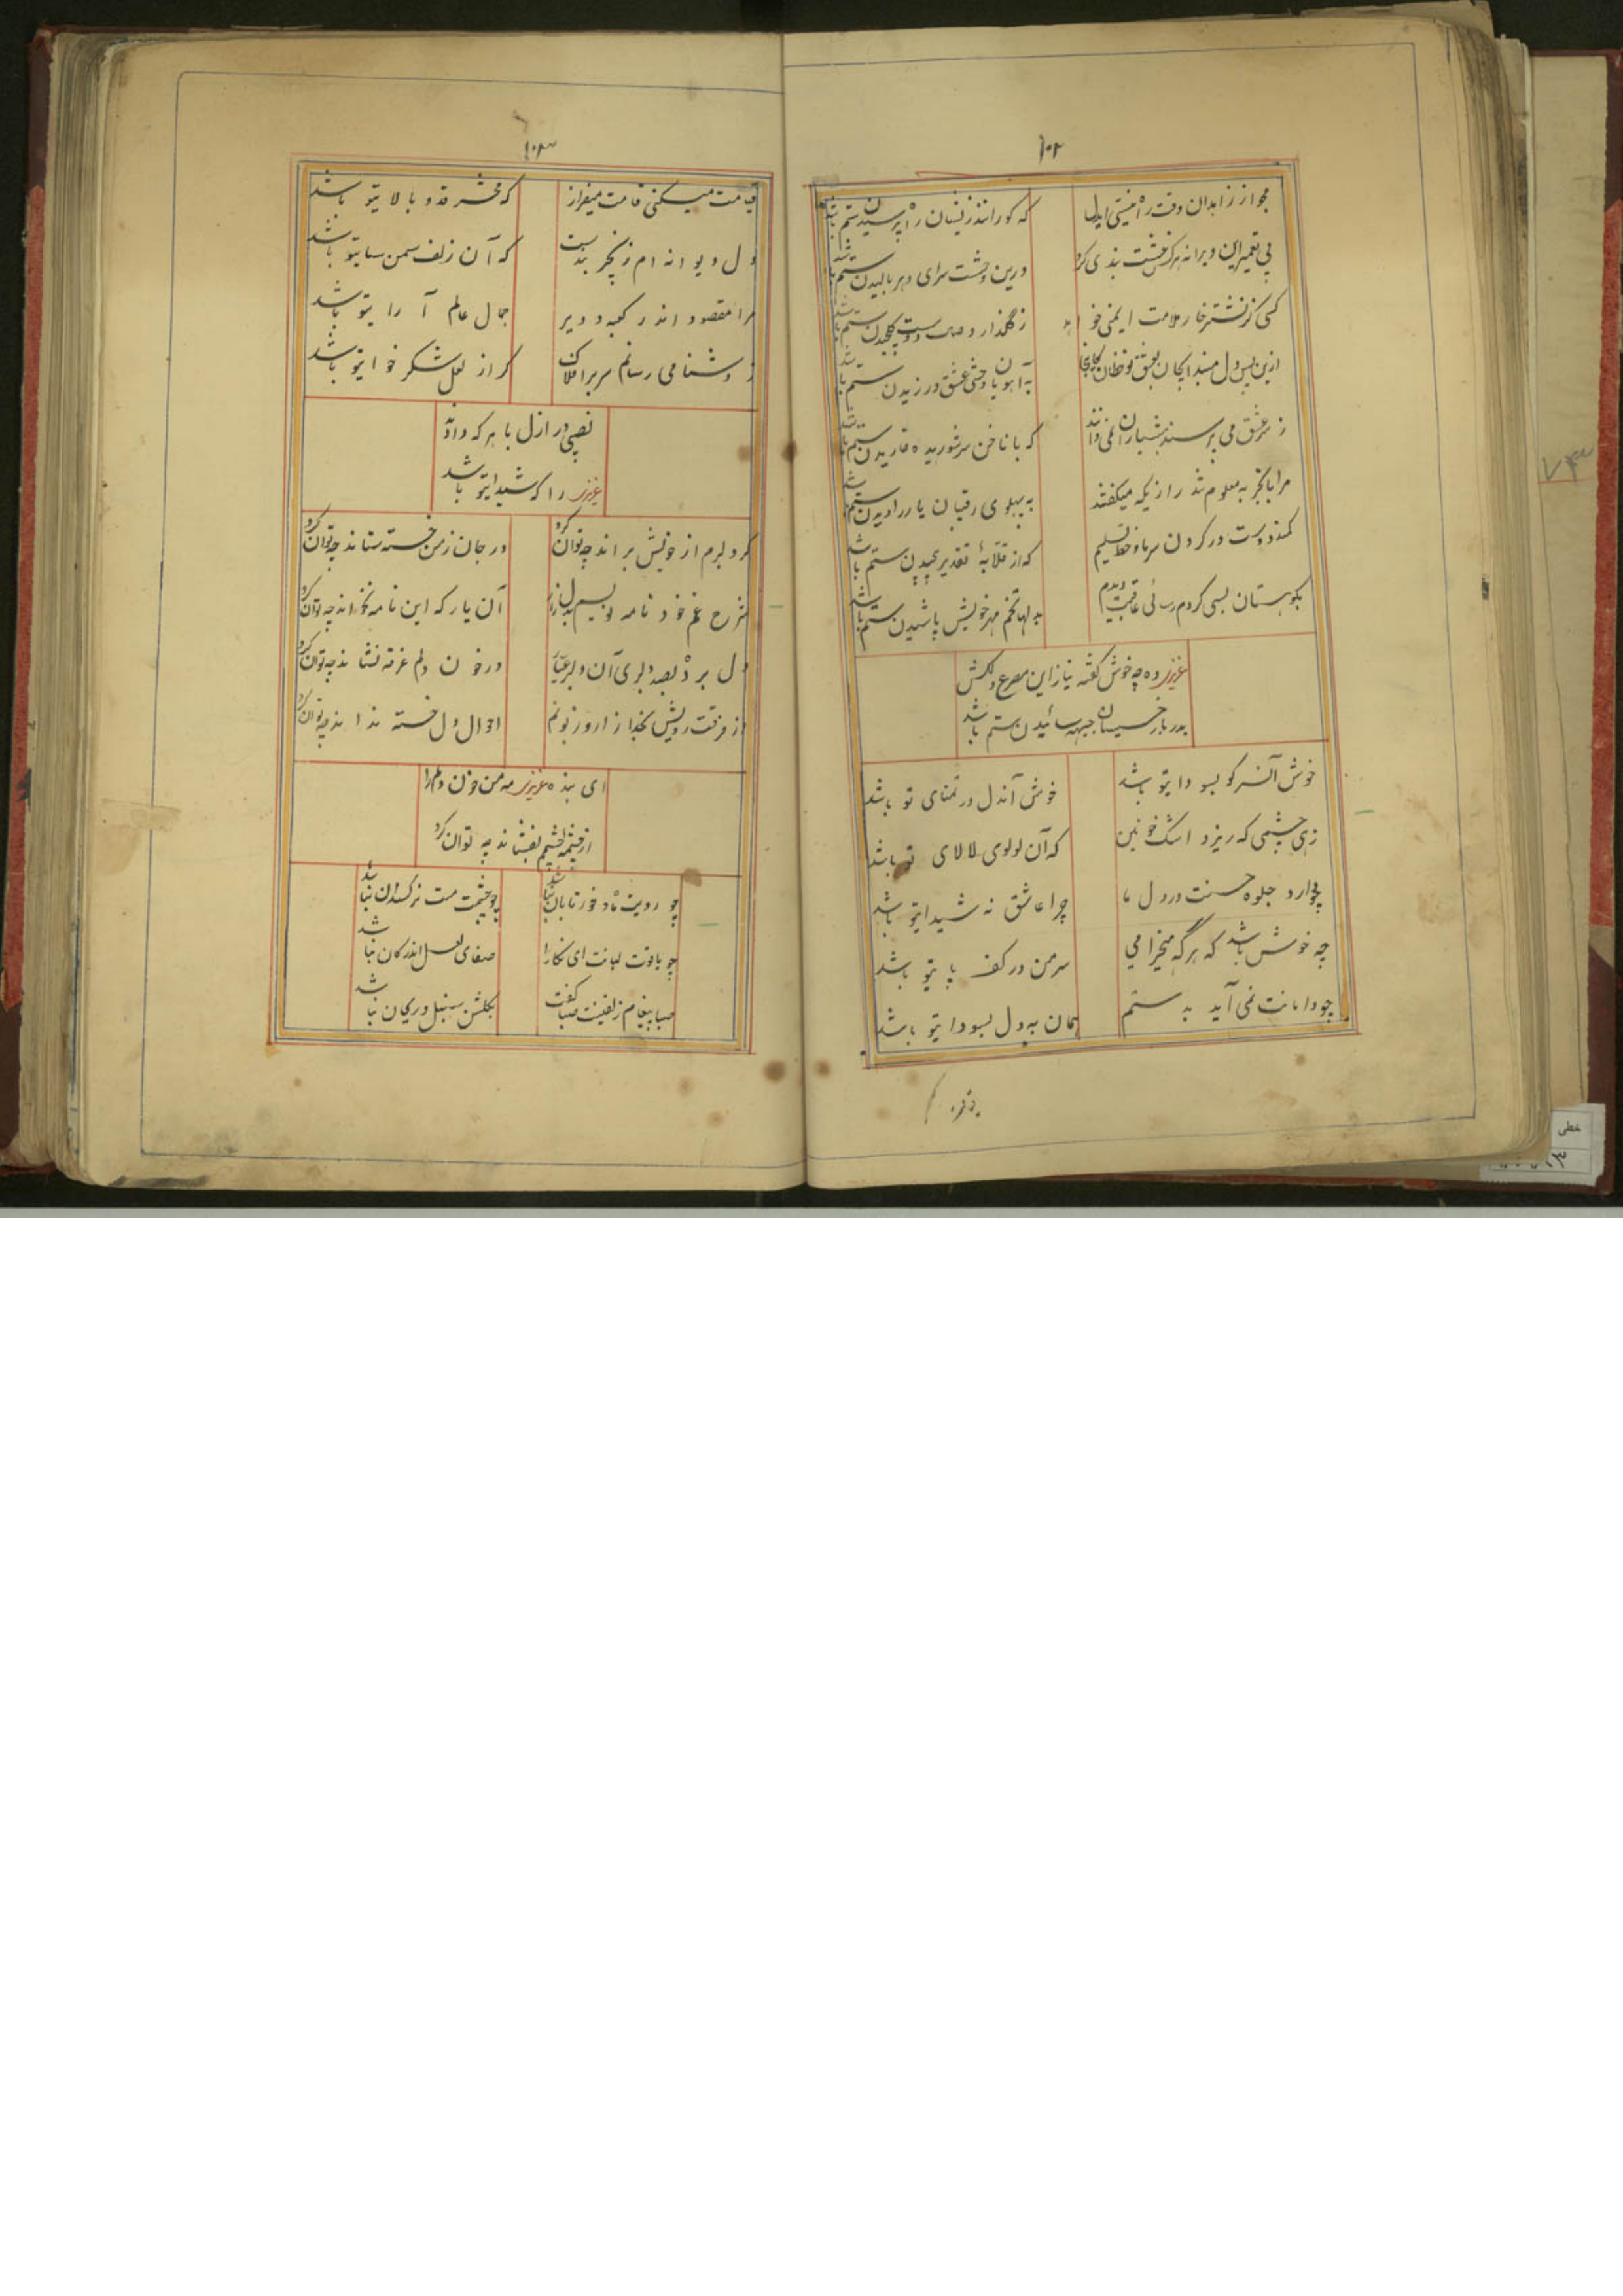 ۱۰۲
مجو از زاهدان وقت ره نیستی ایدل
که کوران‌اند زیشان راه پرسیدن ستم باشد
پی تعمیر این ویرانه هرکس خشت بندی کرد
درین وحشت سرای دهر بالیدن ستم باشد
کسی کز نشتر خار ملامت ایمنی خواهد
ز گلذار وصال دوست گلچیدن ستم باشد
ازین پس دل
به آهو یا وحشی عشق ورزیدن ستم باشد
ز سر عشق می پرسند هشیاران نمی دانند
که با ناخن سر شوریده خاریدن ستم باشد
مرا با تجربه معلوم شد رازیکه میگفتند
به پهلوی رقیبان یار را دیدن ستم باشد
کمند دوست در گردن سر ما و خط تسلیم
که از قلابهٔ تقدیر پیچیدن ستم باشد
بکوهستان بسی کردم رسائی عاقبت دیدم
به دلها تخم مهر خویش پاشیدن ستم باشد
عزیزی وه چه خوش گفته نیاز این مصرع دلکش
بدربار خسیسان جبهه سائیدن ستم باشد
خوش آنسر کو بسودایتو باشد
خوش آندل در تمنای تو باشد
زهی چشمی که ریزد اشک خونین
که آن لولوی لالای تو باشد
چو دارد جلوه حسنت در دل ما
چرا عاشق نه شیدایتو باشد
چه خوش باشد که هرگه میخرامی
سر من در کف پایتو باشد
چو دامانت نمی آید بدستم
همان به دل بسودایتو باشد
۱۰۳
قیامت میکنی قامت میفراز
که محشر قد و بالایتو باشد
دل دیوانه ام زنجیر بندست
که آن زلف سمن سایتو باشد
مرا مقصود اندر کعبه و دیر
جمال عالم آرایتو باشد
ز دشنامی رسانم سر بر افلاک
گر از لعل شکر خوایتو باشد
نصیبی در ازل با هر که دادند
عزیزی را که شیدایتو باشد
گر دلبرم از خویش براند چه توان کرد
ور جان ز من خسته ستاند چه توان کرد
شرح غم خود نامه نویسم بدلدار
آن یار که این نامه نخواند چه توان کرد
دل برده بصد دلبری آن دلبر عیار
در خون دلم غرقه نشاند چه توان کرد
از فرقت رویش بخدا زار و زبونم
احوال دل خسته نداند چه توان کرد
ای بنده عزیزی مه من خون دلم را
از چشمه چشمم بفشاند چه توان کرد
چو رویت ماه و خور تابان نباشد
چو چشمت مست نرگسدان نباشد
چو یاقوت لبانت ای نگارا
صفای لعل اندر کان نباشد
صبا پیغام زلفینت صبا گفت
بگلشن سنبل و ریحان نباشد
۷۳
خطی